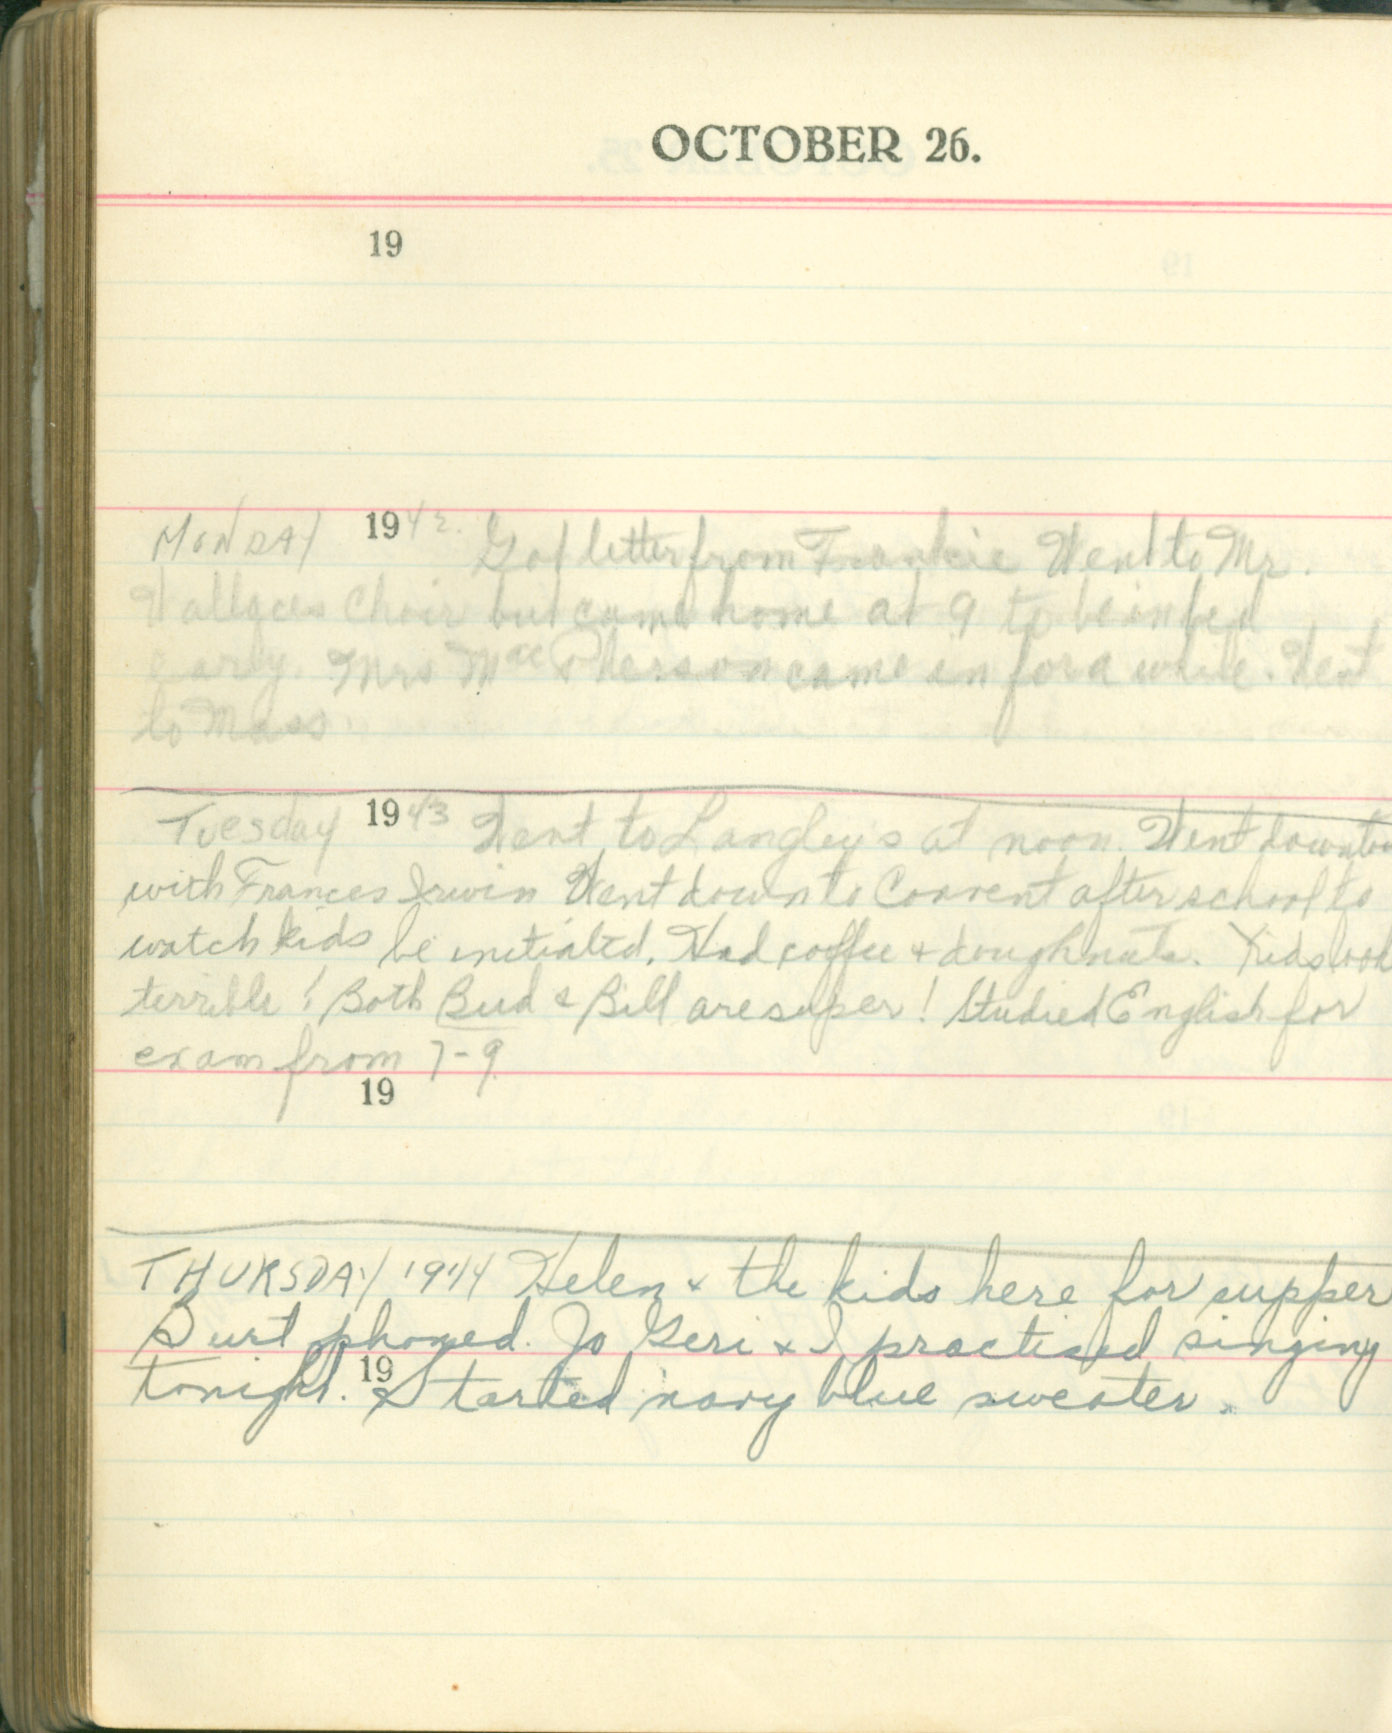 OCTOBER 26.
19
MONDAY 1942. Got letter from Frankie Went to Mr.
Wallaces Choir but came home at 9 to be in bed
early. Mrs MacPherson came in for a while. Went
to Mass
Tuesday 1943 Went to Langley's at noon. Went downtow
with Frances Irwin Went down to Convent after school to
watch kids be initiated. Had coffee & doughnuts. Kids look
terrible! Both Bud & Bill are super! Studied English for
exam from 7-9
19
THURSDAY 1944 Helen & the kids here for supper
Burt phoned. Jo Geri & I practised singing
tonight. 19 Started navy blue sweater.